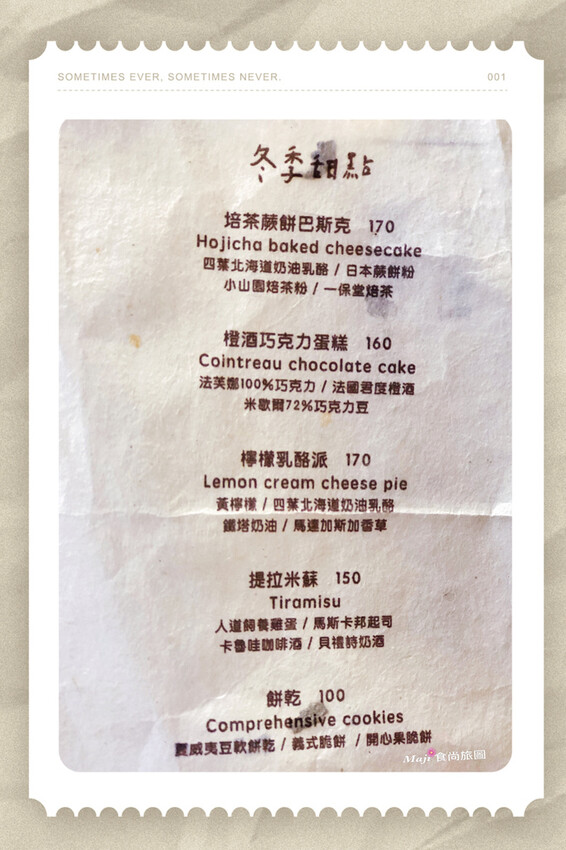 SOMETIMES EVER, SOMETIMES NEVER.
001
冬季甜點
培茶蕨餅巴斯克 170
Hojicha baked cheesecake
四葉北海道奶油乳酪 / 日本蕨餅粉
小山園焙茶粉 / 一保堂焙茶
橙酒巧克力蛋糕 160
Cointreau chocolate cake
法芙娜100%巧克力 / 法國君度橙酒
米歇爾72%巧克力豆
檸檬乳酪派 170
Lemon cream cheese pie
黃檸檬 / 四葉北海道奶油乳酪
鐵塔奶油 / 馬達加斯加香草
提拉米蘇 150
Tiramisu
人道飼養雞蛋 / 馬斯卡邦起司
卡魯哇咖啡酒 / 貝禮詩奶酒
餅乾 100
Comprehensive cookies
夏威夷豆軟餅乾 / 義式脆餅 / 開心果脆餅
Maji 食尚旅圖